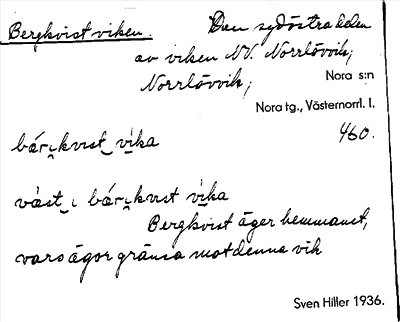 Bergkvistviken. Den sydöstra delen
av viken NV. Norrlövvik;
Norrlövvik; Nora s:n
Nora tg., Västernorrl. l.
460.
bár̯ı̯kvıst‿vı̀ka
vàst‿ı bár̯ı̯kvıst vı̀ka
Bergkvist äger hemmanet,
vars ägor gränsa mot denna vik
Sven Hiller 1936.